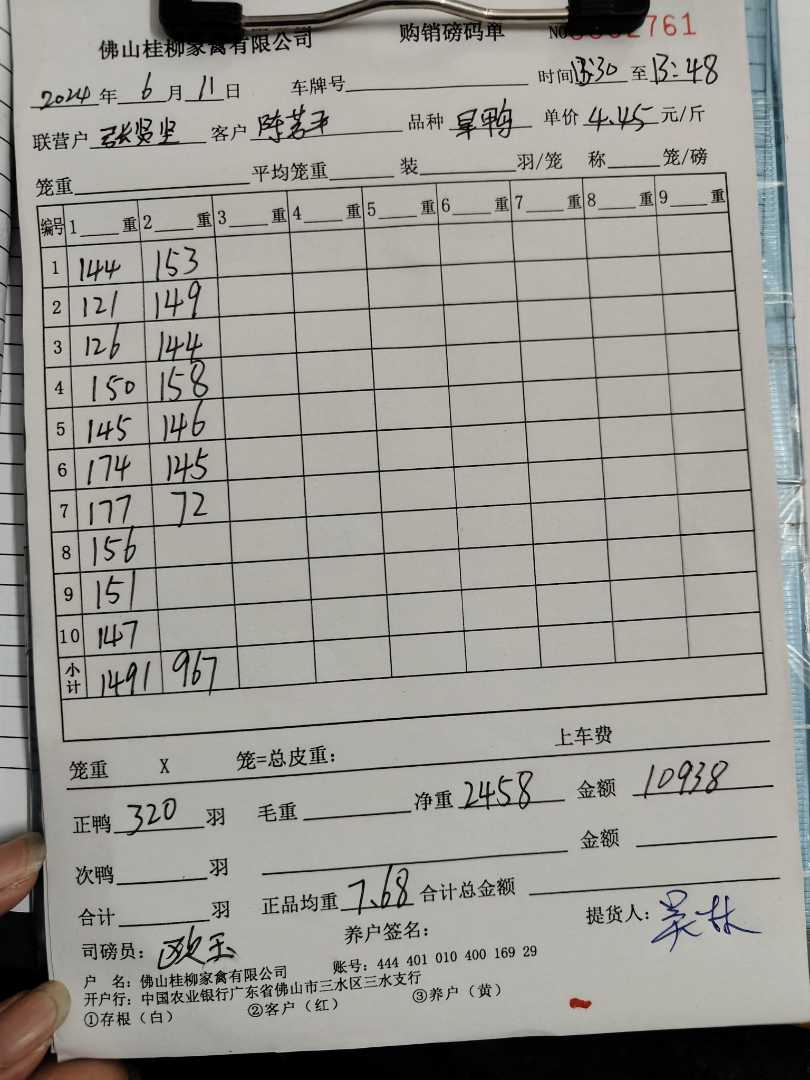 佛山桂柳家禽有限公司 购销磅码单 NO 2761
2024年6月11日 车牌号 时间13:30至13:48
联营户 张贤坚 客户 陈若平 品种 旱鸭 单价 4.45 元/斤
笼重 平均笼重 装 羽/笼 称 笼/磅
编号 1 重 2 重 3 重 4 重 5 重 6 重 7 重 8 重 9 重
1 144 153
2 121 149
3 126 144
4 150 158
5 145 146
6 174 145
7 177 72
8 156
9 151
10 147
小计 1491 967
笼重 X 笼=总皮重: 上车费
正鸭 320 羽 毛重 净重 2458 金额 10938
次鸭 羽 金额
合计 羽 正品均重 7.68 合计总金额
司磅员: 欧玉 养户签名: 提货人:
户 名: 佛山桂柳家禽有限公司 账号: 444 401 010 400 169 29
开户行: 中国农业银行广东省佛山市三水区三水支行
①存根（白） ②客户（红） ③养户（黄）